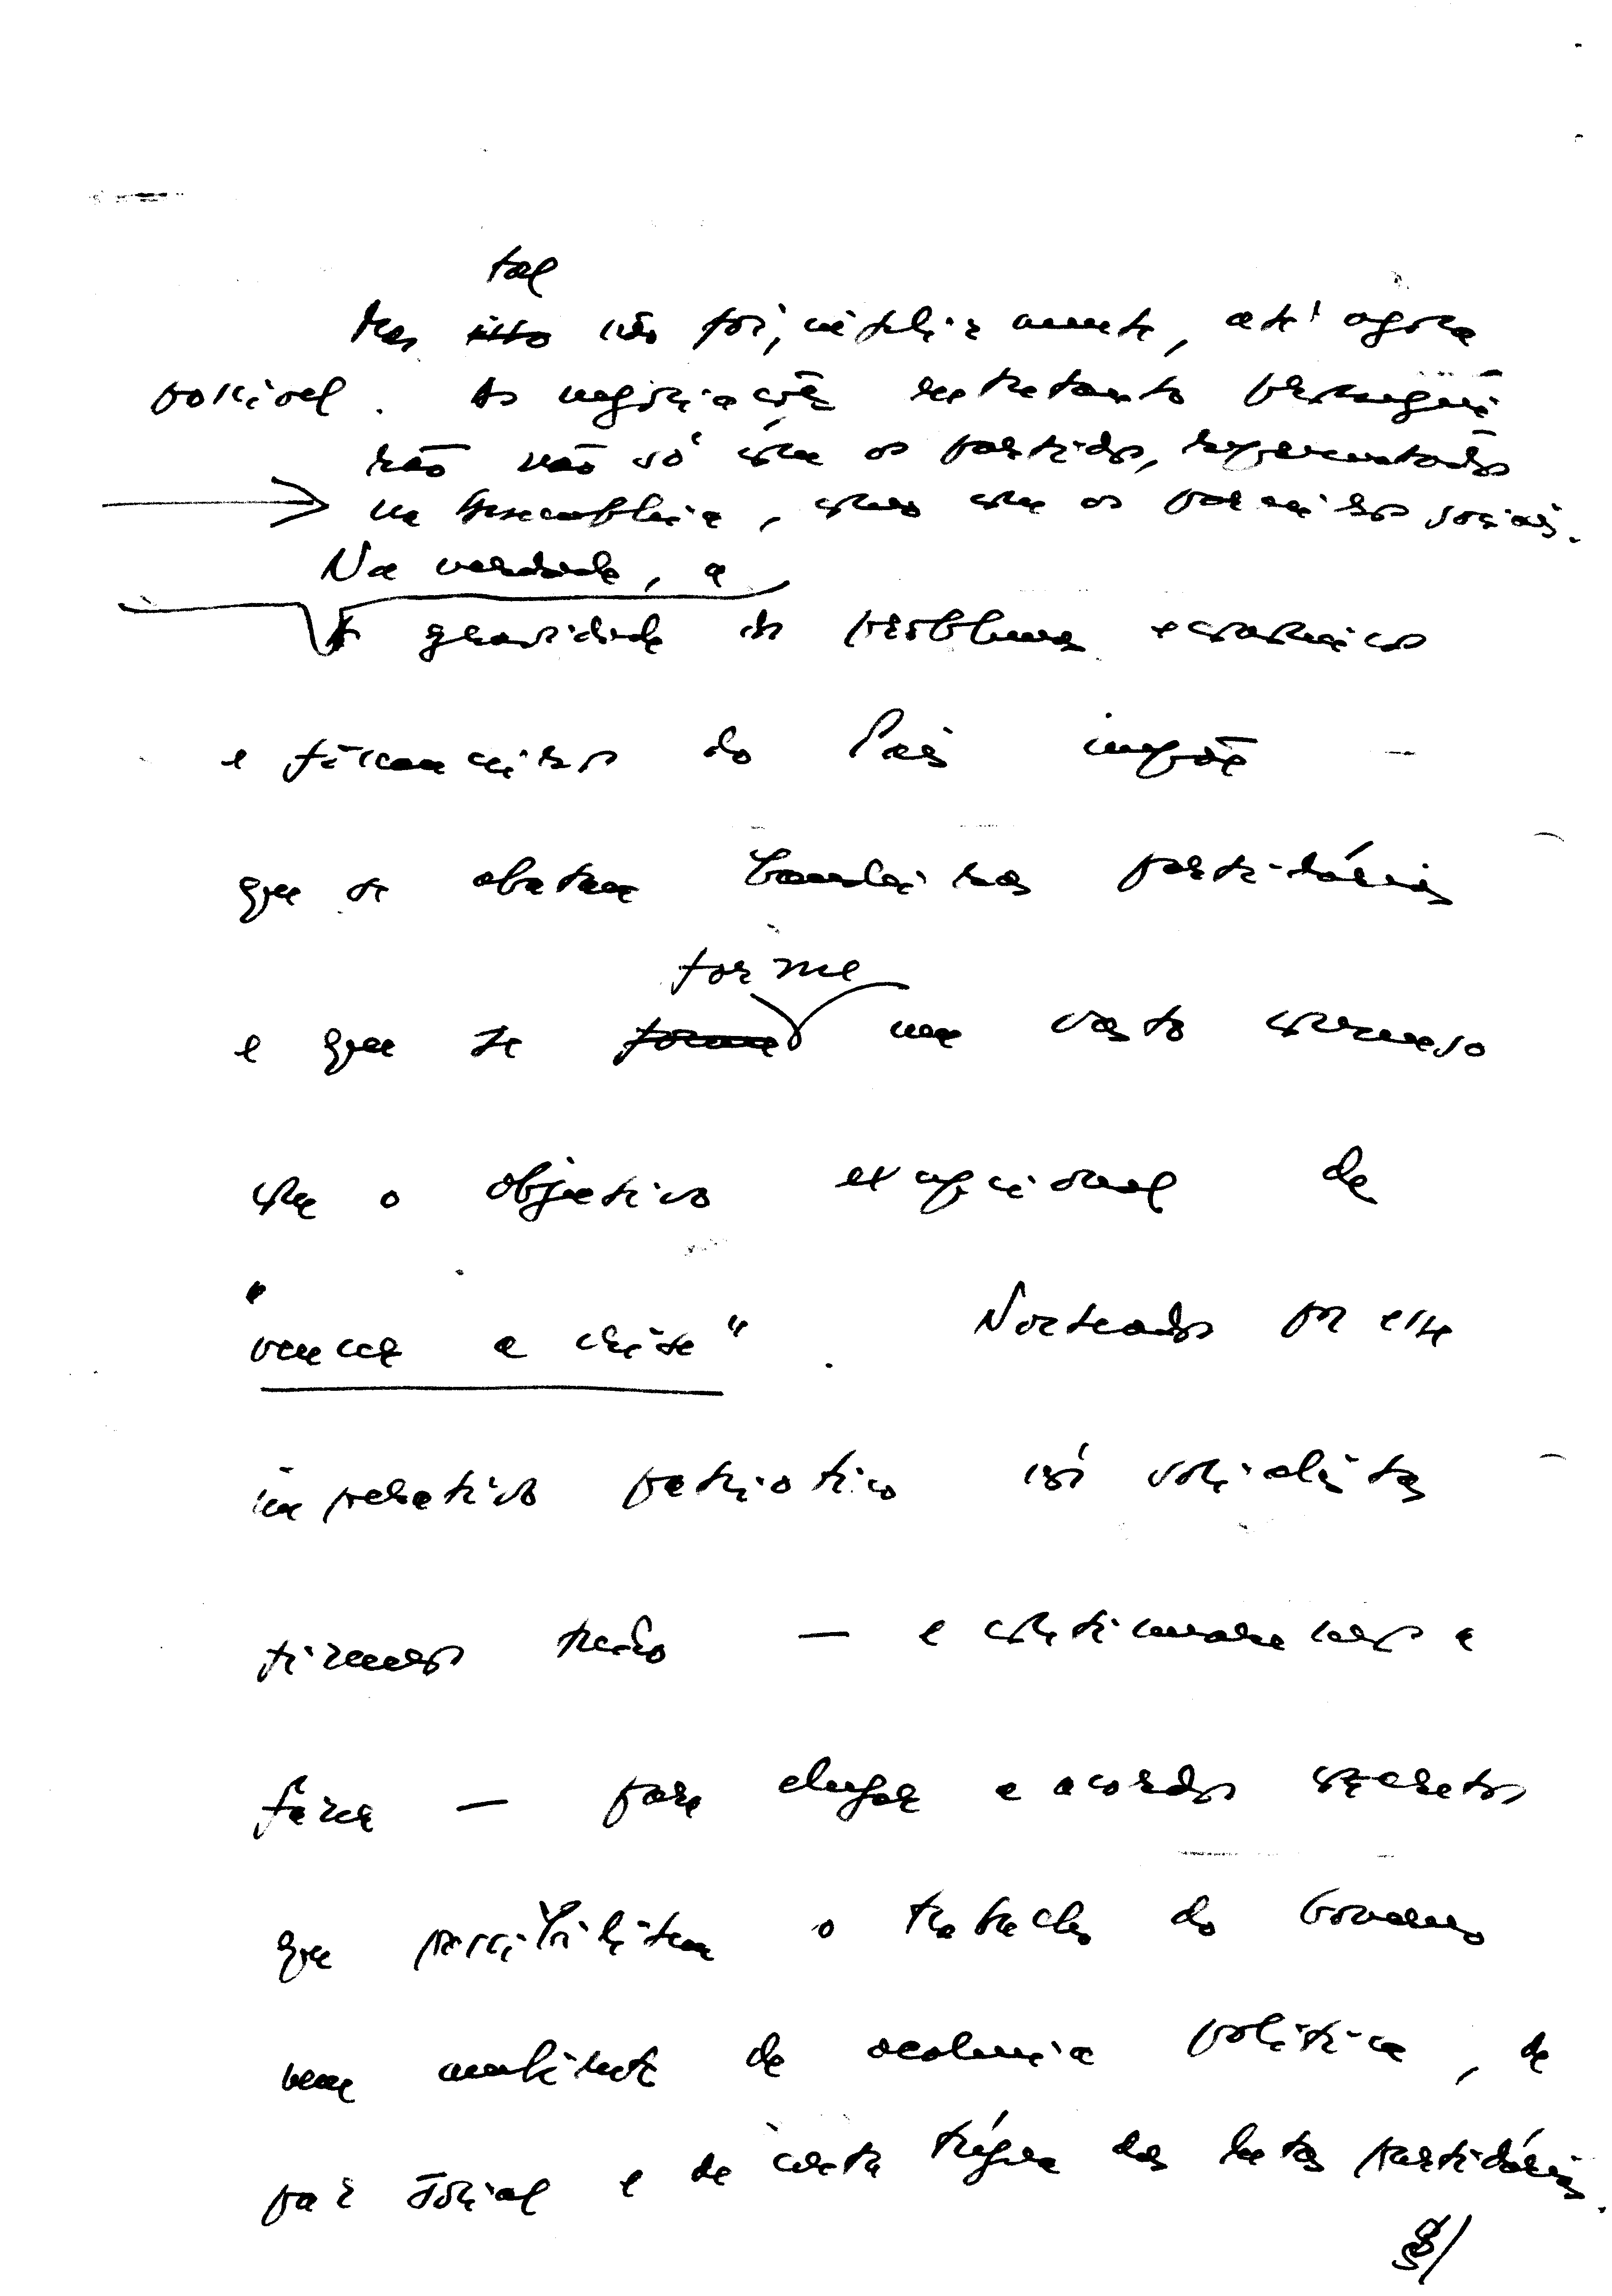 tal
Mas isto não foi, infelizmente, até agora
possível. As negociações entretanto prosseguirão
não só com os partidos, representados
na Assembleia, mas com os parceiros sociais.
Na verdade, a
A gravidade do problema económico
e financeiro do País impõe
que se abatam bandeiras partidárias
forme
e que se forme um vasto consenso
com o objectivo excepcional de
"vencer a crise". Norteados por esse
imperativo patriótico nós socialistas
fizemos tudo — e continuaremos a
fazer — para chegar a acordos concretos
que possibilitem o trabalho do Governo
num ambiente de acalmia política, de
paz social e de certa trégua das lutas partidárias.